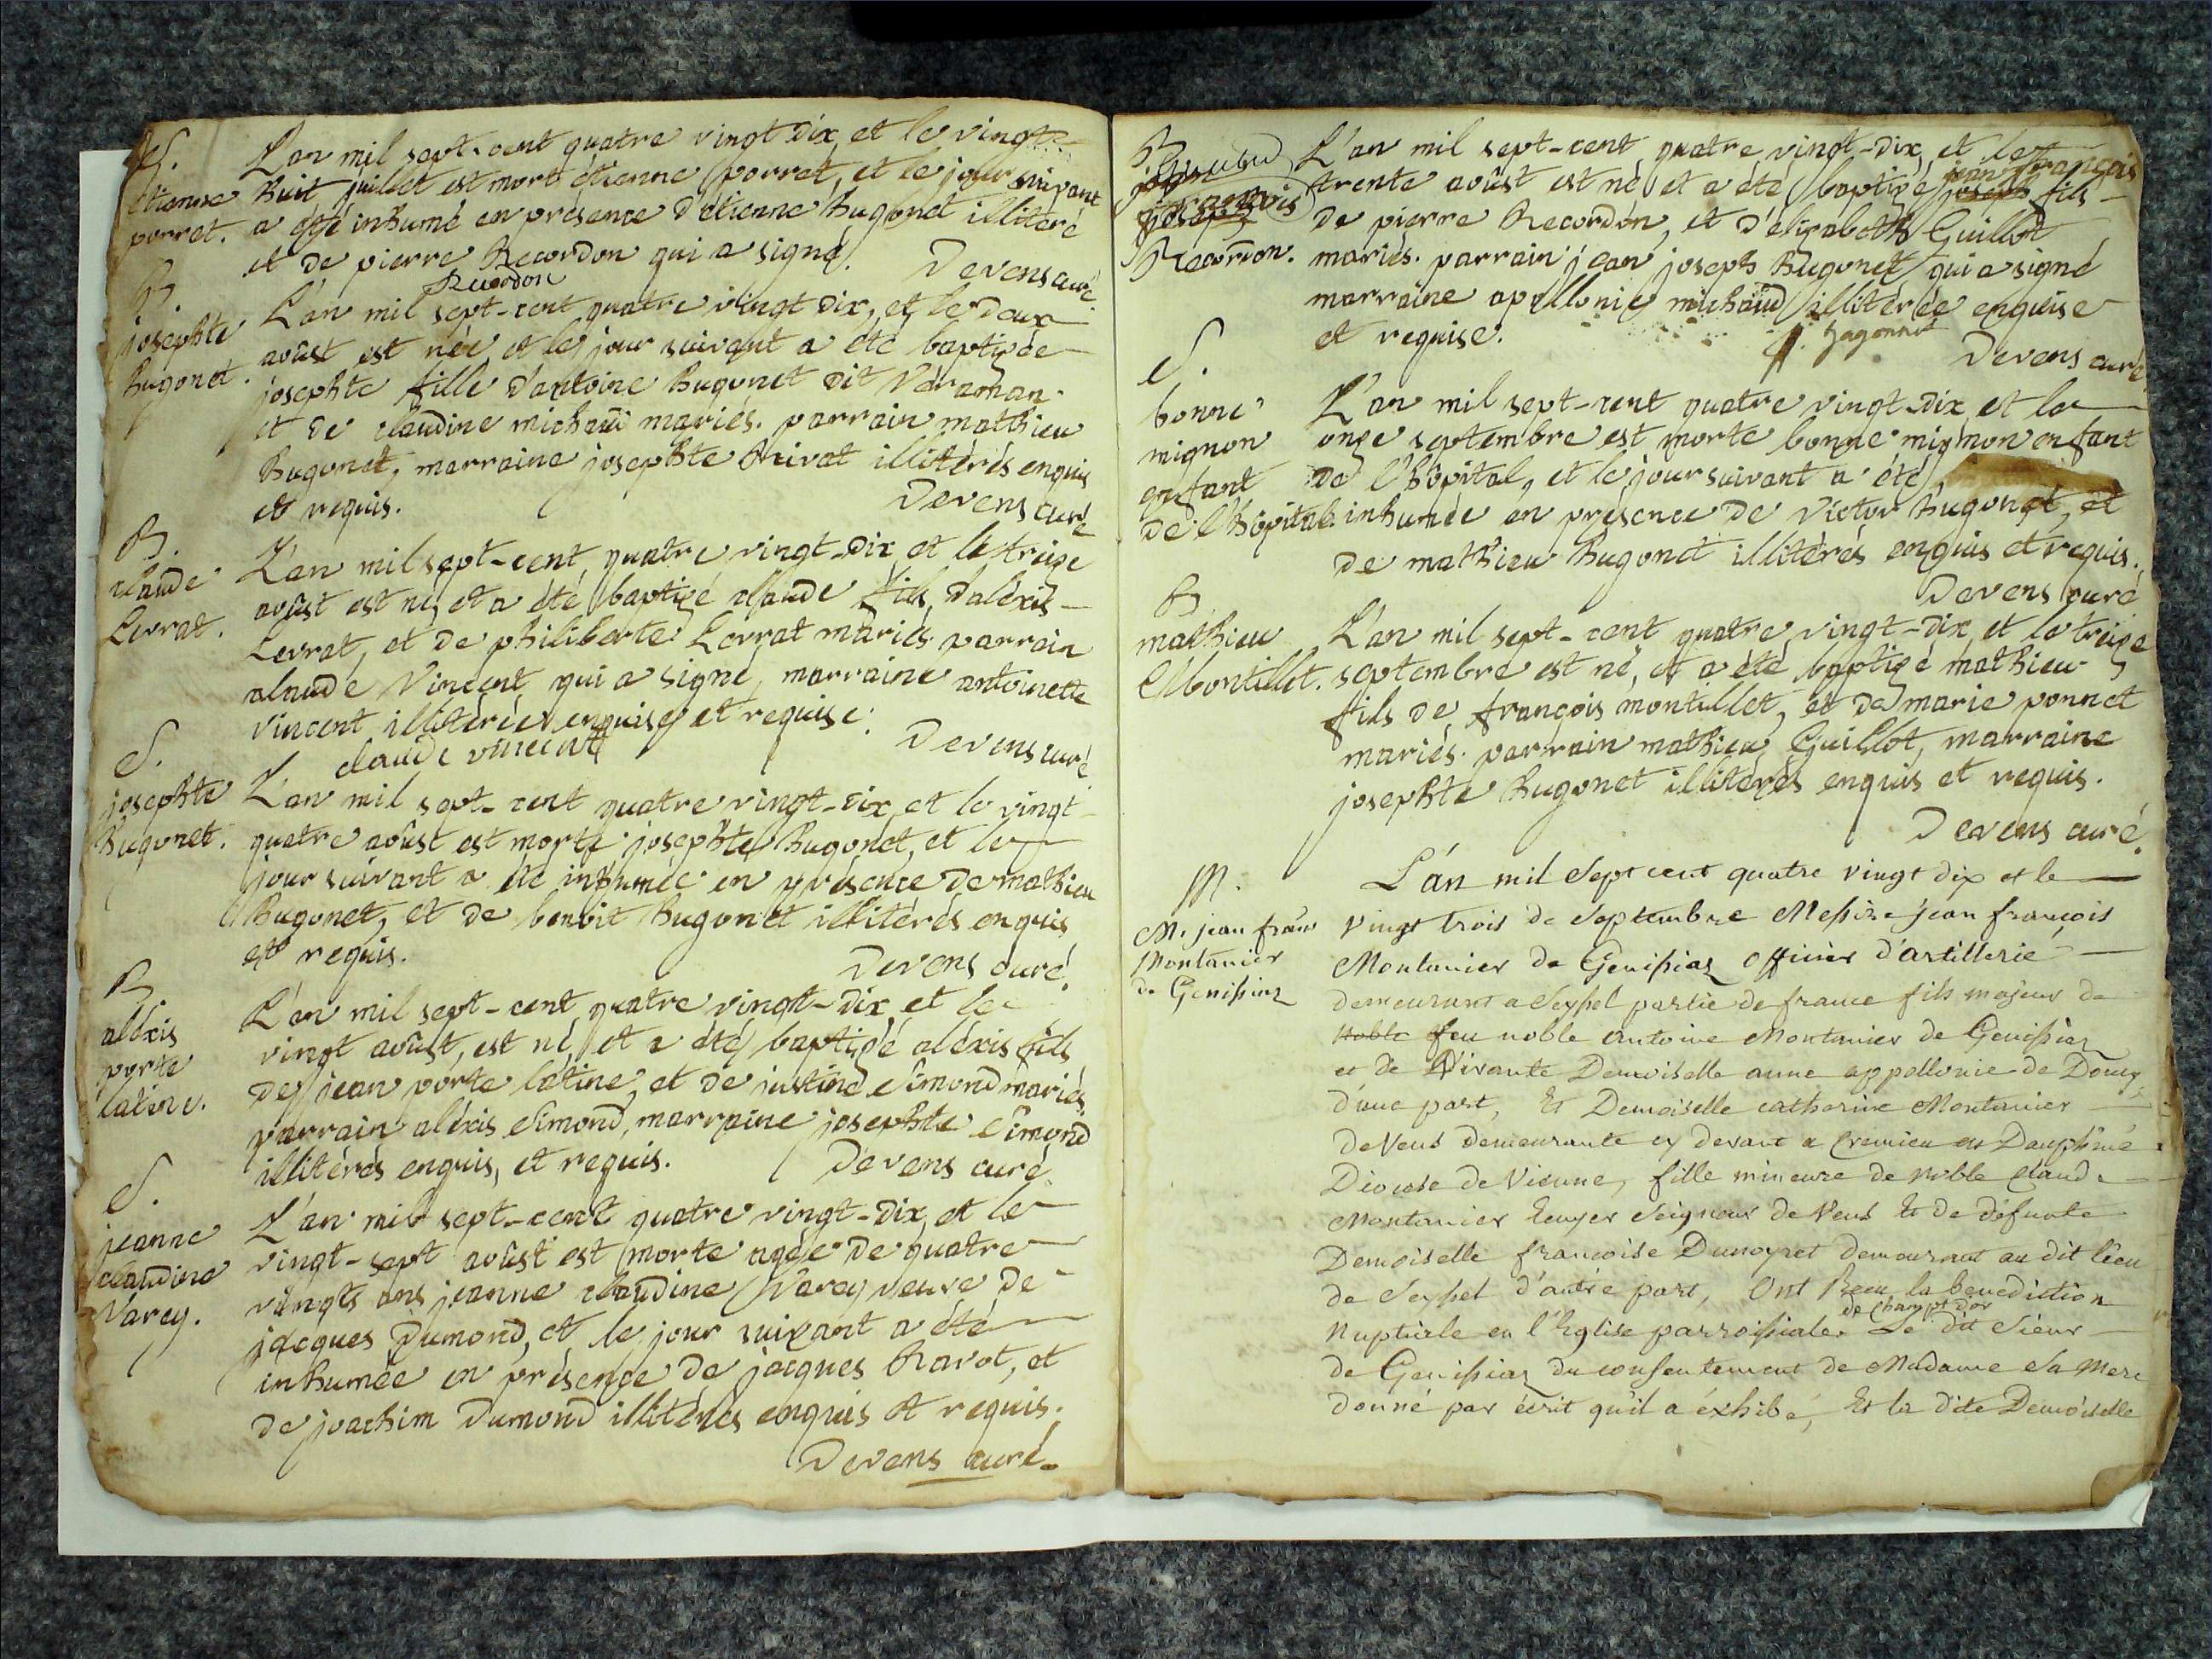 S.
étienne
porret.
L'an mil sept-cent quatre vingt dix, et le vingt-
huit juillet est mort étienne porret, et le jour suivant
a été inhumé en présence d'étienne hugonet illitéré
et de pierre Recordon qui a signé. Devens curé
Recordon
B.
josephte
hugonet.
L'an mil sept-cent quatre vingt dix, et le deux
aoûst est née et le jour suivant a été baptizée
josephte fille d'antoine hugonet dit
et de claudine michaud mariés. parrain mathieu
hugonet, marraine josephte illitérés enquis
et requis. Devens curé
B.
claude
Levrat.
L'an mil sept-cent quatre vingt-dix et le treize
aoûst est né, et a été baptizé claude fils d'aléxis
Levrat, et de philiberte Levrat mariés. parrain
claude Vincent qui a signé, marraine antoinette
vincent illitérée enquise et requise.
claude vincent Devens curé
S.
josephte
hugonet.
L'an mil sept-cent quatre vingt-dix, et le vingt
quatre aoûst est morte josephte hugonet, et le
jour suivant a été inhumée en présence de mathieu
hugonet, et de benoit hugonet illitérés enquis
et requis. Devens curé.
B
aléxis
porte
latine.
L'an mil sept-cent quatre vingt-dix et le
vingt aoûst, est né, et a été baptizé aléxis fils
de jean porte latine, et de justine Simond mariés.
parrain aléxis Simond, marraine josephte Simond
illitérés enquis, et requis. Devens curé.
S.
jeanne
claudine
Varey.
L'an mil sept-cent quatre vingt-dix, et le
vingt-sept aoûst est morte agée de quatre
vingts ans jeanne claudine Varey veuve de
jacques Dumond, et le jour suivant a été
inhumée en présence de jacques Ravot, et
de joachim Dumond illitérés enquis et requis.
Devens curé.
B
françois
joseph
Recordon.
L'an mil sept-cent quatre vingt-dix, et le
jean françois
trente aoûst est né et a été baptizé joseph fils
de pierre Recordon, et d'élizabeth Guillot
mariés. parrain jean joseph hugonet qui a signé
marraine apollonie michaud illitérée enquise
et requise. hugonnet
Devens curé.
S.
bonne
mignon
enfant
de l'hôpital.
L'an mil sept-cent quatre vingt-dix et le
onze septembre est morte bonne mignon enfant
de l'hôpital, et le jour suivant a été
inhumée en présence de victor hugonet, et
de mathieu hugonet illitérés enquis et requis.
Devens curé
B
mathieu
Montillet.
L'an mil sept-cent quatre vingt-dix, et le treize
septembre est né, et a été baptizé mathieu
fils de françois montillet, et de marie ponnet
mariés. parrain mathieu Guillot, marraine
josephte hugonet illitérés enquis et requis.
Devens curé.
M.
M. jean frans
Montanier
de Genissiaz
L'an mil Sept cent quatre vingt dix et le
vingt trois de Septembre Messire jean françois
Montanier de Genissiaz officier d'artillerie
demeurant a Seyssel partie de france fils majeur de
Noble feu noble antoine Montanier de Genissiaz
et de vivante Demoiselle anne appollonie de Doucy
d'une part, Et Demoiselle catherine Montanier
de Vens demeurante cy devant a Cremieu en Dauphiné
Diocese de Vienne, fille mineure de Noble Claude
Montanier Ecuyer Seigneur de Vens Et de défunte
Demoiselle françoise Dunoyret demeurant au dit lieu
de Seyssel d'autre part, Ont Recu la benediction
de Champt d'or
Nuptiale en l'Eglise parroissiale Le dit Sieur
de Genissiaz du consentement de Madame Sa Mere
donné par écrit qu'il a éxhibé, Et la dite Demoiselle